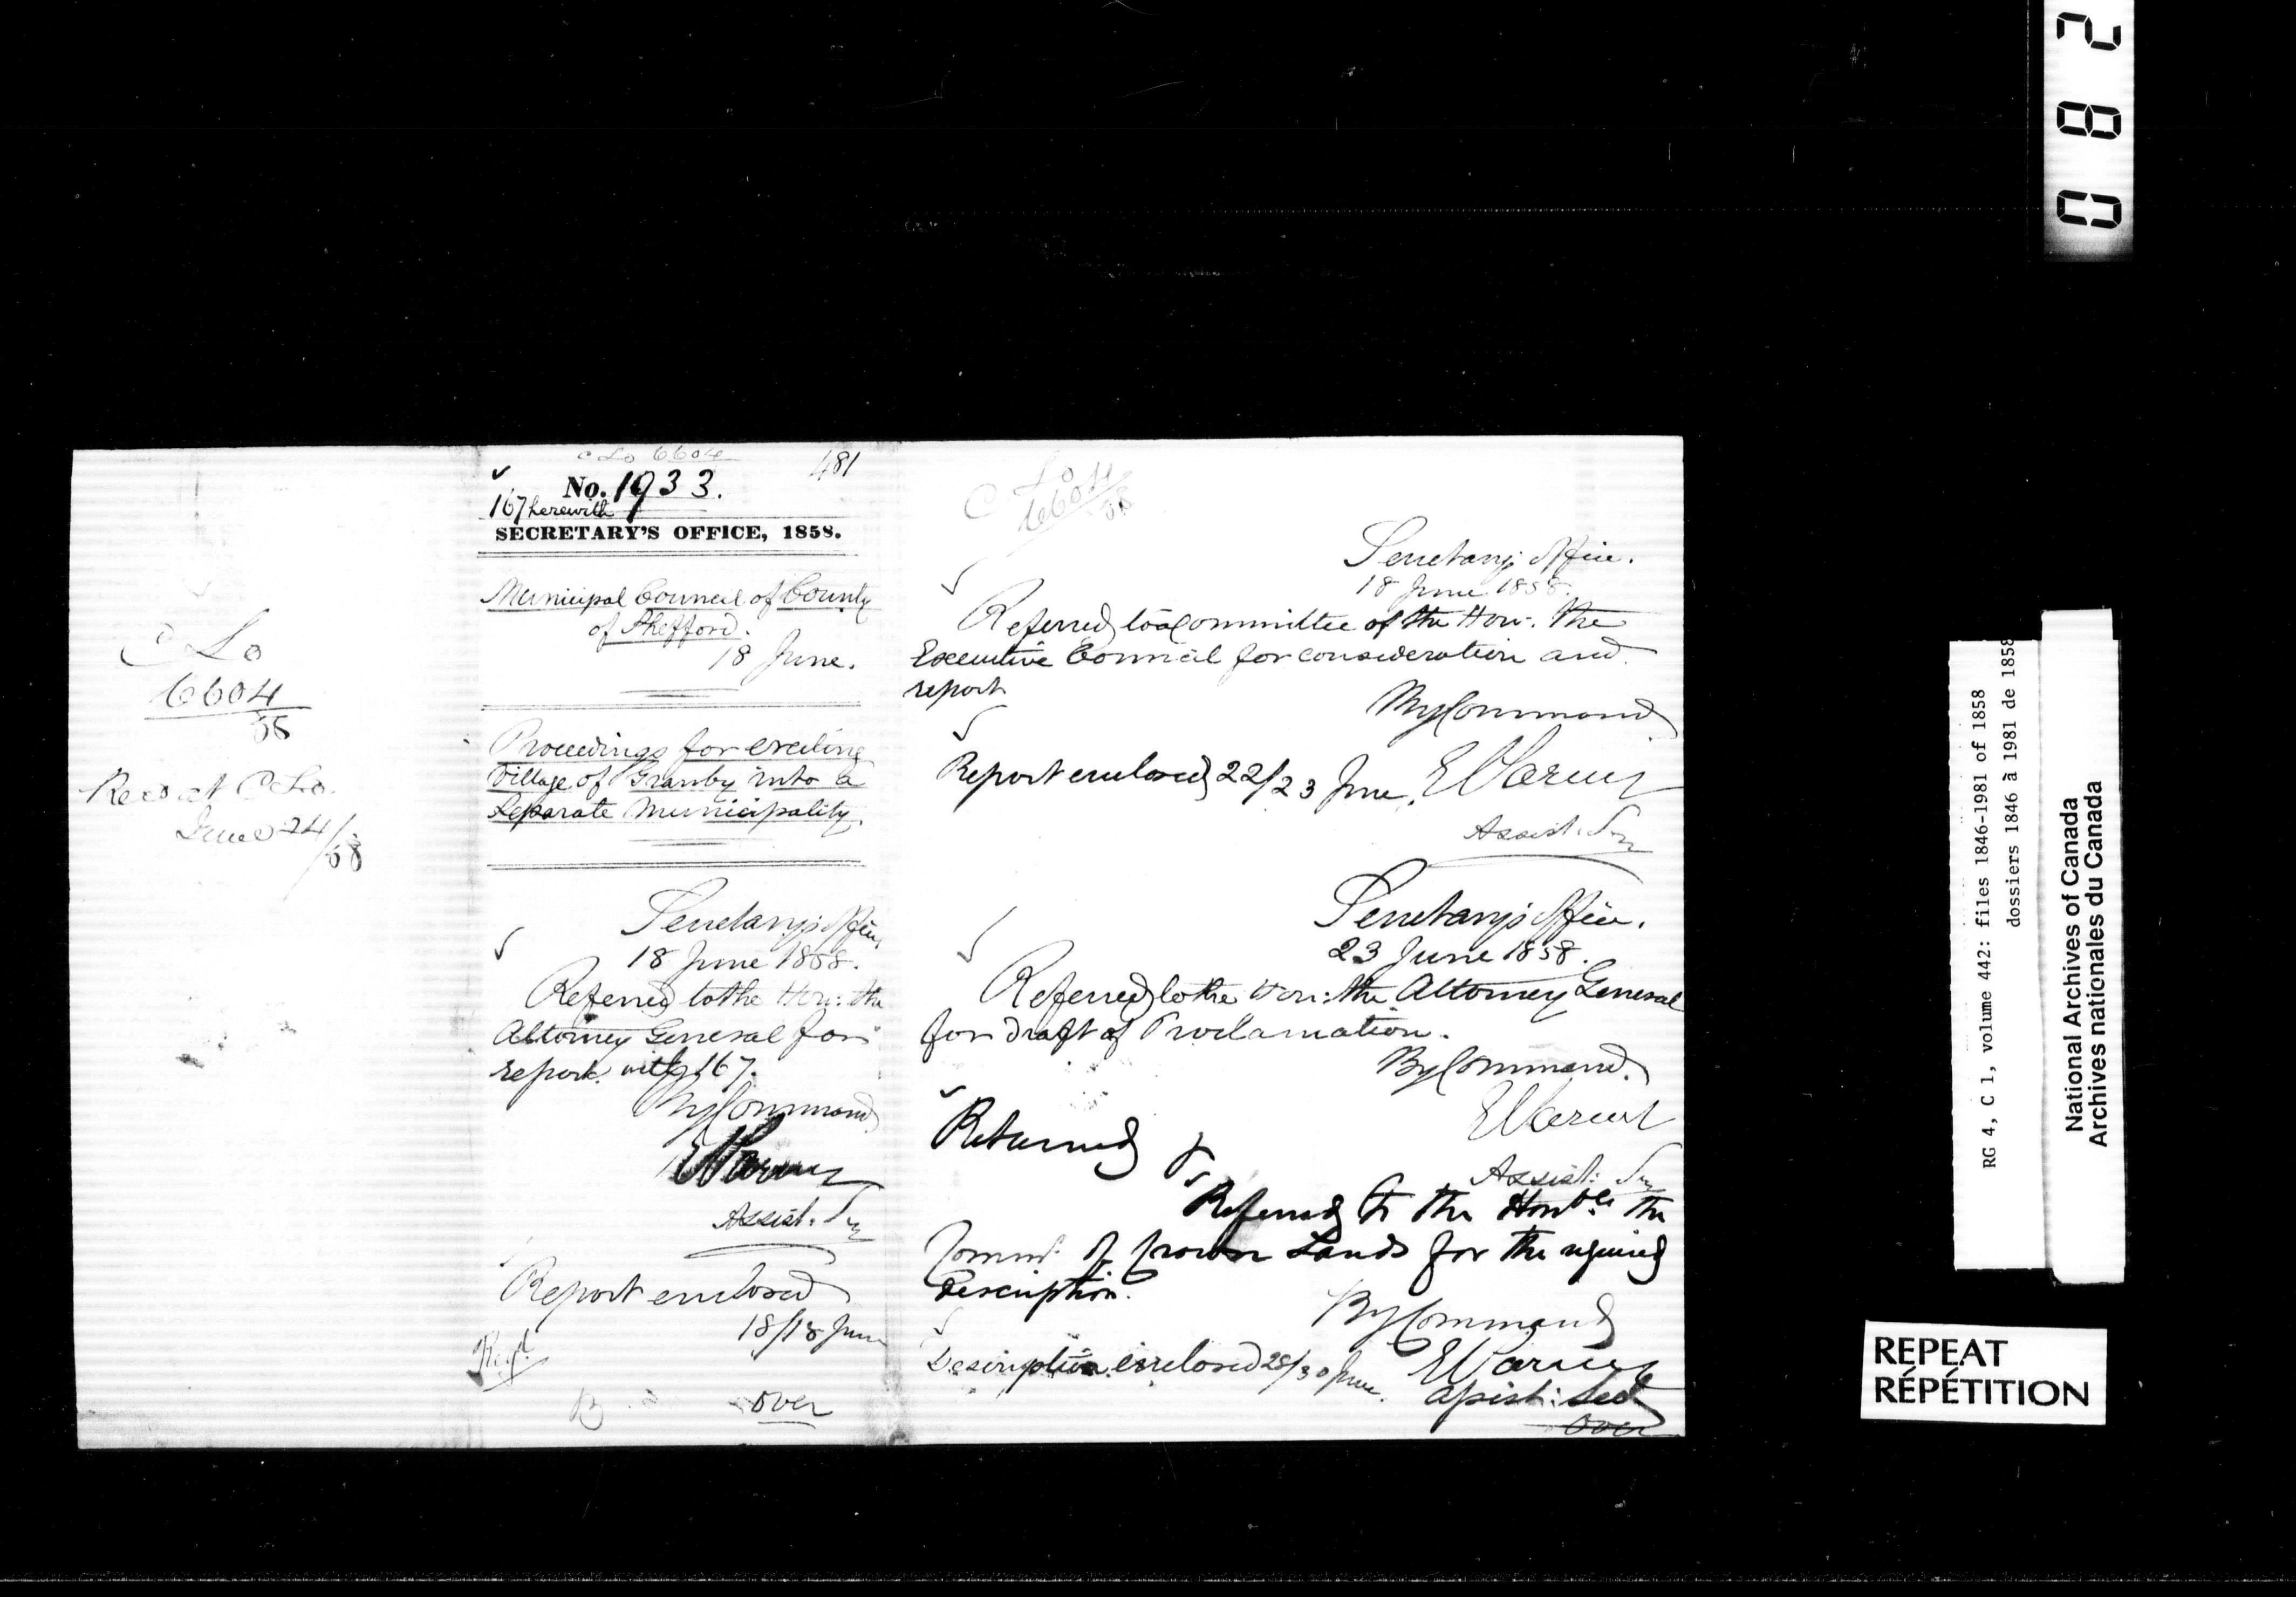 C Lo
6604
58
Recd at C Lo.
June 24/58
C Lo 6604
481
No. 1933.
167 herewith
SECRETARY'S OFFICE, 1858.
Municipal Council of County
of Shefford.
18 June.
Proceedings for erecting
Village of Granby into a
Separate Municipality.
Secretary's Office,
18 June 1858.
Referred to the Hon: the
Attorney General for
report. with 167.
By Command
E Parent
Assist. Sy
Report enclosed
18/18 June
Regd
B
over
C Lo
6604
58
Secretary's Office.
18 June 1858.
Referred to a Committee of the Hon. the
Executive Council for consideration and
report
By Command
Report enclosed 22/23 June. E Parent
Assist. Sy
Secretary's Office.
23 June 1858.
Referred to the Hon: the Attorney General
for draft of Proclamation.
By Command.
E Parent
Assist: Sy
Returned &
Referred to the Honble the
Commr of Crown Lands for the required
Description.
By Command
Description enclosed 28/30 June. E Parent
Assist: Sec
over
0 8 2
RG 4, C 1, volume 442: files 1846-1981 of 1858
dossiers 1846 à 1981 de 1858
National Archives of Canada
Archives nationales du Canada
REPEAT
RÉPÉTITION